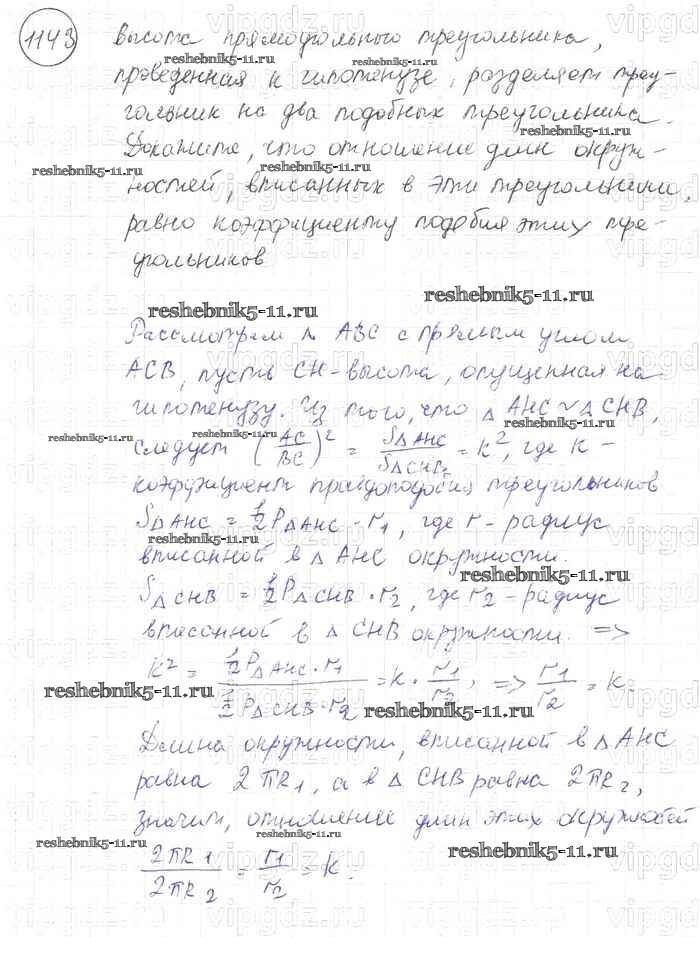 1143 Высота прямоугольного треугольника,
проведенная к гипотенузе, разделяет треу-
гольник на два подобных треугольника.
Докажите, что отношение длин окруж-
ностей, вписанных в эти треугольники,
равно коэффициенту подобия этих тре-
угольников
Рассмотрим △ ABC с прямым углом
ACB, пусть CH - высота, опущенная на
гипотенузу. Из того, что △ AHC ~ △ CHB,
следует (AC/BC)² = S△AHC/S△CHB = k², где k -
коэффициент правдоподобия треугольников
S△AHC = 1/2 P△AHC · r₁, где r - радиус
вписанной в △ AHC окружности.
S△CHB = 1/2 P△CHB · r₂, где r₂ - радиус
вписанной в △ CHB окружности. =>
k² = 1/2 P△AHC · r₁ / 1/2 P△CHB · r₂ = k · r₁/r₂, => r₁/r₂ = k.
Длина окружности, вписанной в △ AHC
равна 2πR₁, а в △ CHB равна 2πR₂,
значит, отношение длин этих окружностей
2πR₁/2πR₂ = r₁/r₂ = k.
reshebnik5-11.ru
vipgdz.ru